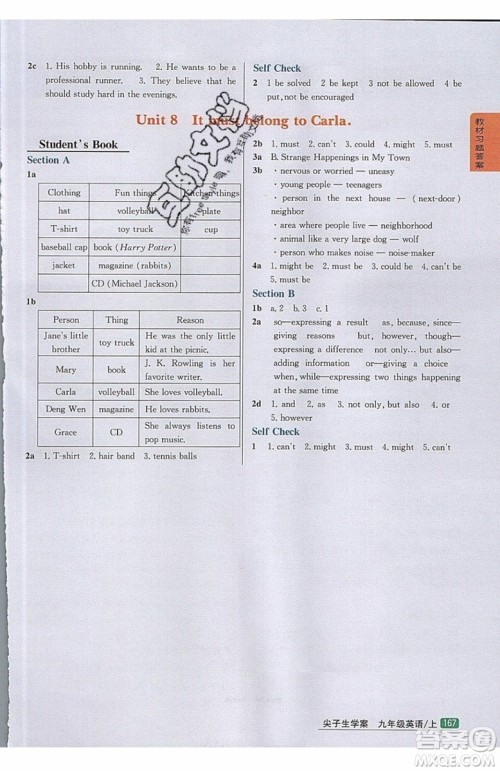 2c 1. His hobby is running. 2. He wants to be a
professional runner. 3. They believe that he
should study hard in the evenings.
Self Check
2 1 be solved 2 be kept 3 not be allowed 4
put, not be encouraged
Unit 8 It must belong to Carla.
Student's Book
Section A
1a
Clothing Fun things Kitchen things
hat volleyball plate
T-shirt toy truck cup
baseball cap book (Harry Potter)
jacket magazine (rabbits)
CD (Michael Jackson)
1b
Person Thing Reason
Jane's little brother toy truck He was the only little kid at the picnic.
Mary book J. K. Rowling is her favorite writer.
Carla volleyball She loves volleyball.
Deng Wen magazine He loves rabbits.
Grace CD She always listens to pop music.
2a 1. T-shirt 2. hair band 3. tennis balls
2b 1. must 2. could 3. might 4. must
3a B. Strange Happenings in My Town
3b • nervous or worried — uneasy
• young people — teenagers
• person in the next house — (next-door)
neighbor
• area where people live — neighborhood
• animal like a very large dog — wolf
• person who makes noise — noisemaker
4a 1. might be 2. must 3. can't 4. could be 5.
must be
Section B
1b a, 2 b, 3 c, 1
2a so—expressing a result as, because, since—
giving reasons but, though, however—
expressing difference not only...but also...,
and—expressing two things happening
at the same time
2d 1. and 2. as 3. not only, but also 4. or
5. however
Self Check
1 1. can't 2. might 3. must 4. might 5. can't
教材习题答案
尖子生学案 九年级英语/上 167